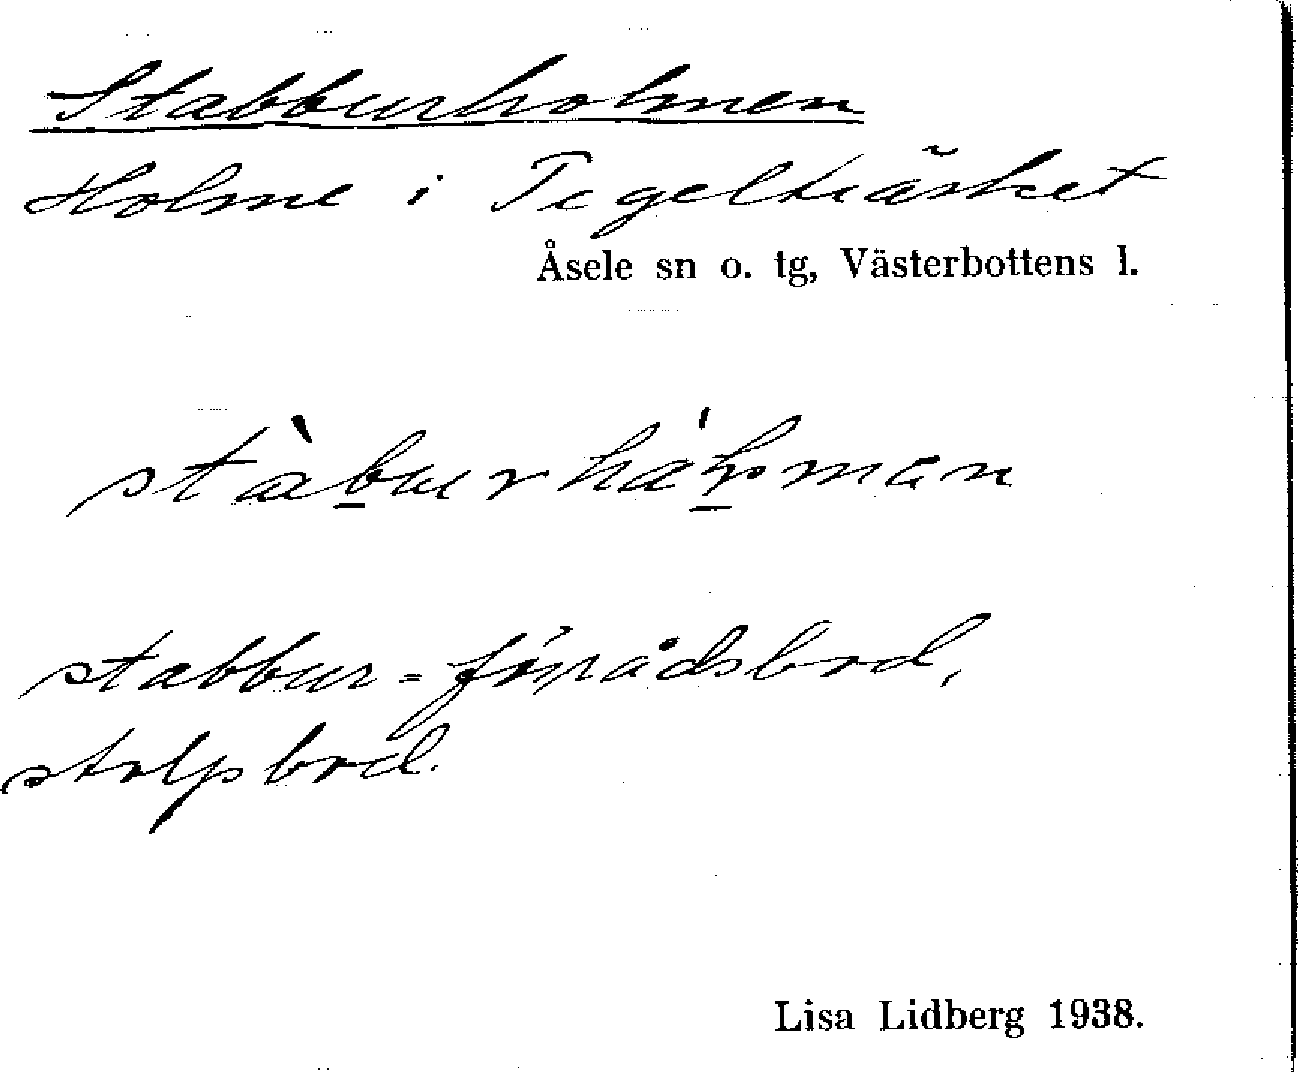 Stabburholmen
Holme i Tegelträsket
Åsele sn o. tg, Västerbottens l.
stabbur = förrådsbod,
stolpbod.
Lisa Lidberg 1938.